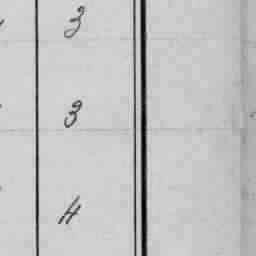 3
3
4